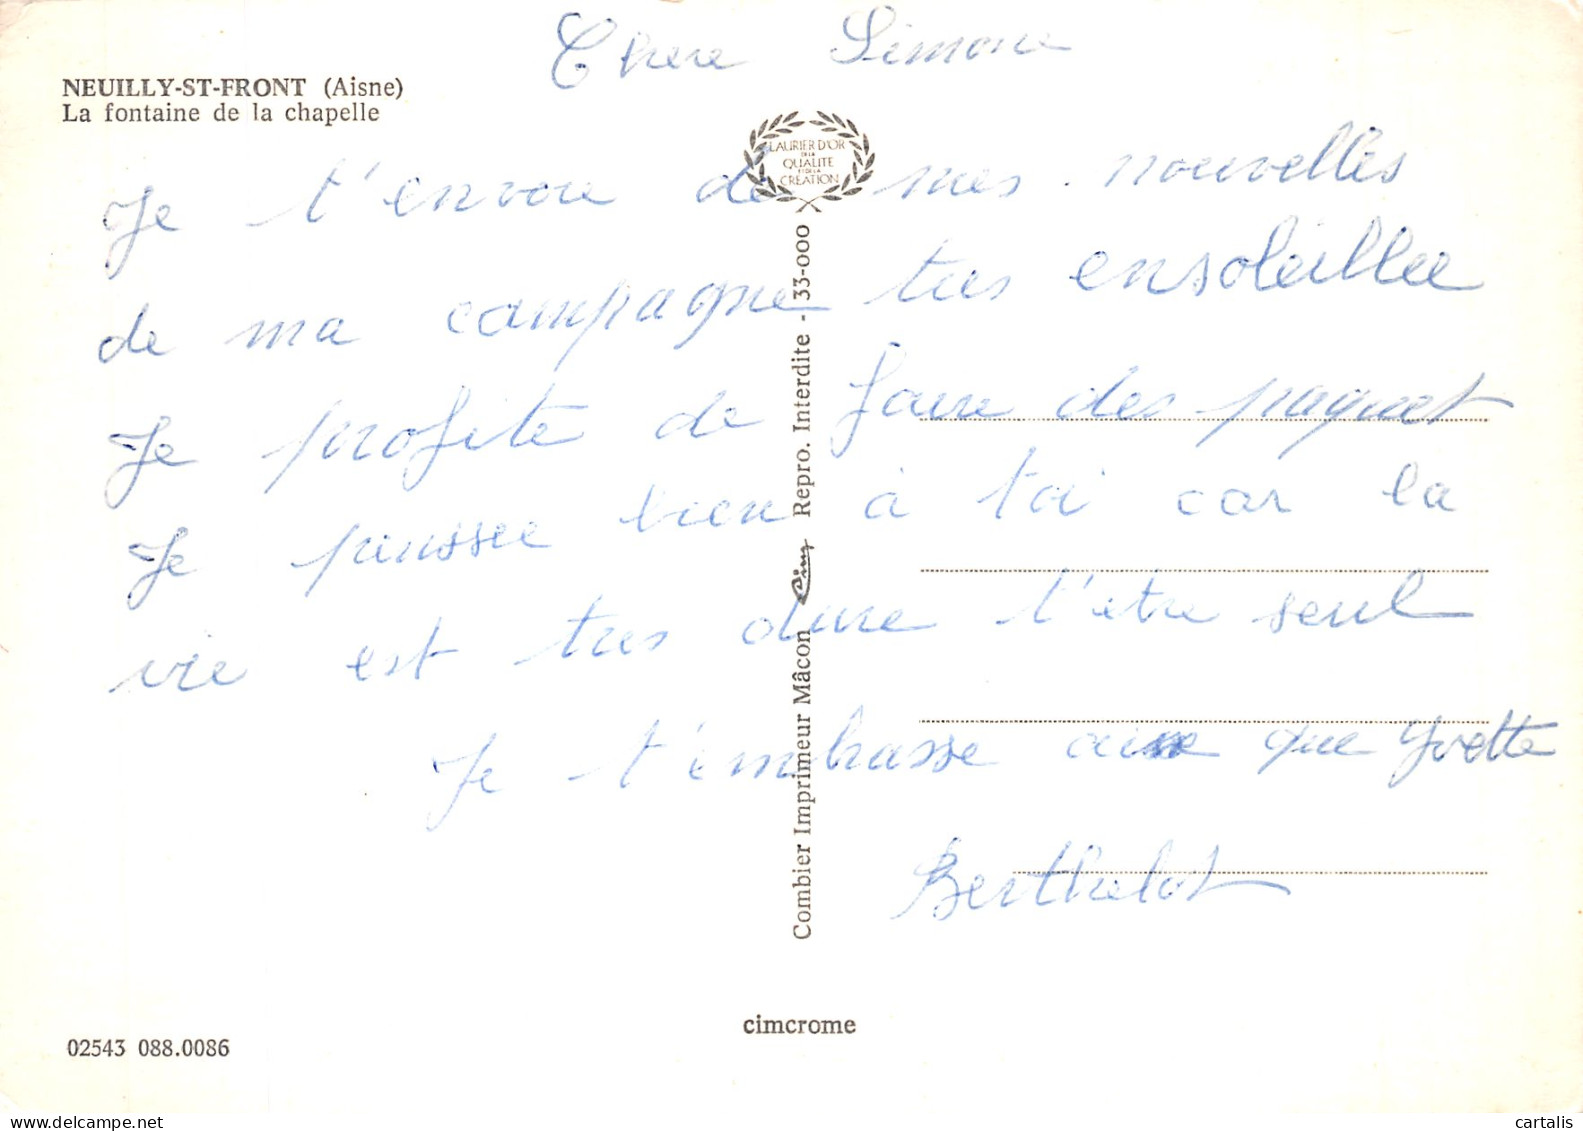 Chere Simone
NEUILLY-ST-FRONT (Aisne)
La fontaine de la chapelle
LAURIER D'OR
DE LA
QUALITE
ET DE LA
CREATION
Je t'envoie de mes nouvelles
de ma campagne tres ensoleillee
Je profite de faire des paquet
Je penssee bien à toi car la
vie est tres dure l'etre seul
Je t'embrasse que Yvette
Berthelot
Combier Imprimeur Mâcon Cim Repro. Interdite - 33-000
cimcrome
02543 088.0086
cartalis